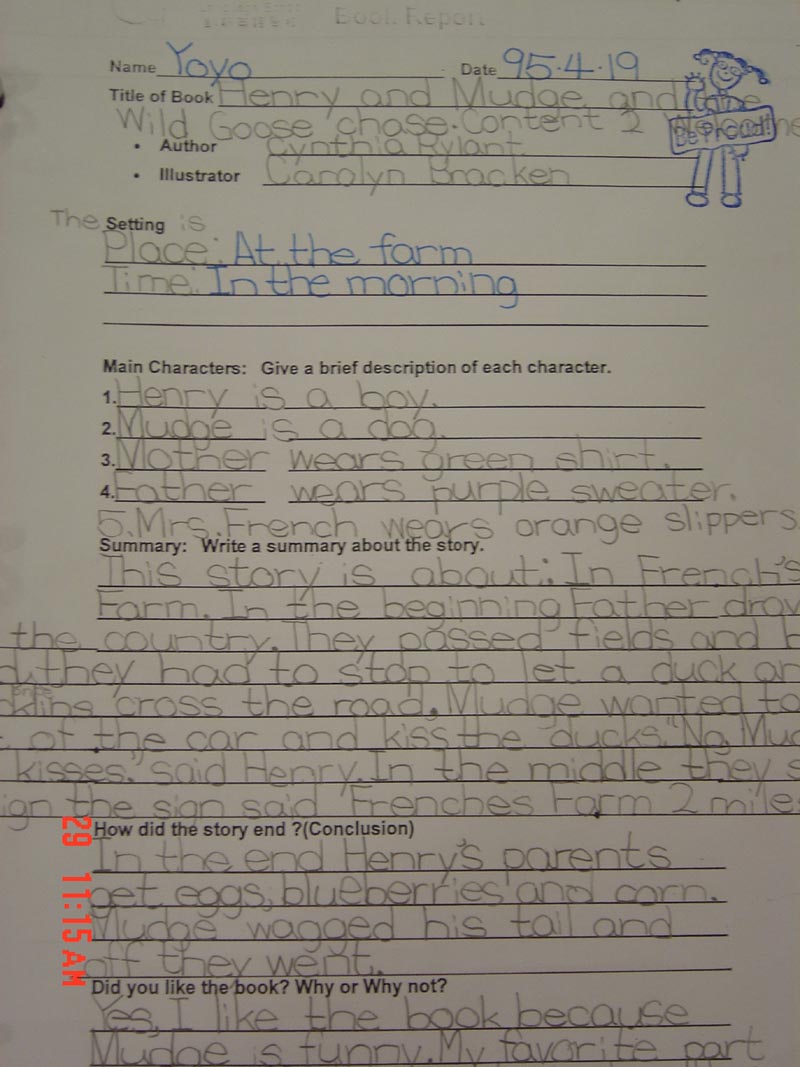 Book Report
Name Yoyo Date 95.4.19
Title of Book Henry and Mudge and the
Wild Goose chase. Content 2
Be Proud!
• Author Cynthia Rylant
• Illustrator Carolyn Bracken
The Setting is
Place: At the farm
Time: In the morning
Main Characters: Give a brief description of each character.
1. Henry is a boy.
2. Mudge is a dog.
3. Mother wears green shirt.
4. Father wears purple sweater.
5. Mrs. French wears orange slippers.
Summary: Write a summary about the story.
This story is about: In French's
Farm. In the beginning Father drov
the country. They passed fields and b
d, they had to stop to let a duck an
cklins cross the road. Mudge wanted to
of the car and kiss the ducks. "No, Mud
kisses." said Henry. In the middle they s
ign the sign said Frenches Farm 2 mile
How did the story end ?(Conclusion)
In the end Henry's parents
get eggs, blueberries and corn.
Mudge wagged his tail and
off they went.
Did you like the book? Why or Why not?
Yes, I like the book because
Mudge is funny. My favorite part
29 11:15 AM